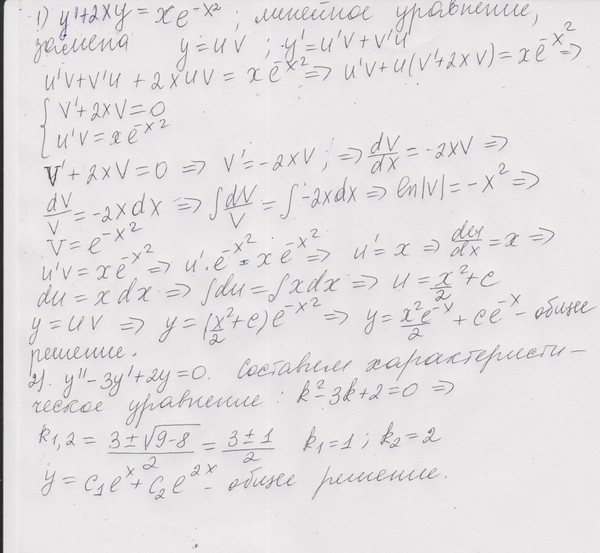 1) y'+2xy = xe^{-x²}; линейное уравнение,
замена y=uv; y'=u'v+v'u
u'v+v'u + 2xuv = xe^{-x²} => u'v+u(v'+2xv)=xe^{-x²} =>
{ v'+2xv=0
u'v=xe^{-x²}
v'+2xv=0 => v'=-2xv; => dv/dx = -2xv =>
dv/v = -2xdx => ∫dv/v = ∫-2xdx => ln|v| = -x² =>
v=e^{-x²}
u'v = xe^{-x²} => u'·e^{-x²} = xe^{-x²} => u'=x => du/dx = x =>
du = xdx => ∫du=∫xdx => u = x²/2 + c
y=uv => y=(x²/2+c)e^{-x²} => y = x²e^{-x}/2 + ce^{-x} - общее
решение.
2). y''-3y'+2y=0. Составим характеристи-
ческое уравнение: k²-3k+2=0 =>
k1,2 = 3±√9-8/2 = 3±1/2 k1=1; k2=2
y = c1e^x + c2e^{2x} - общее решение.